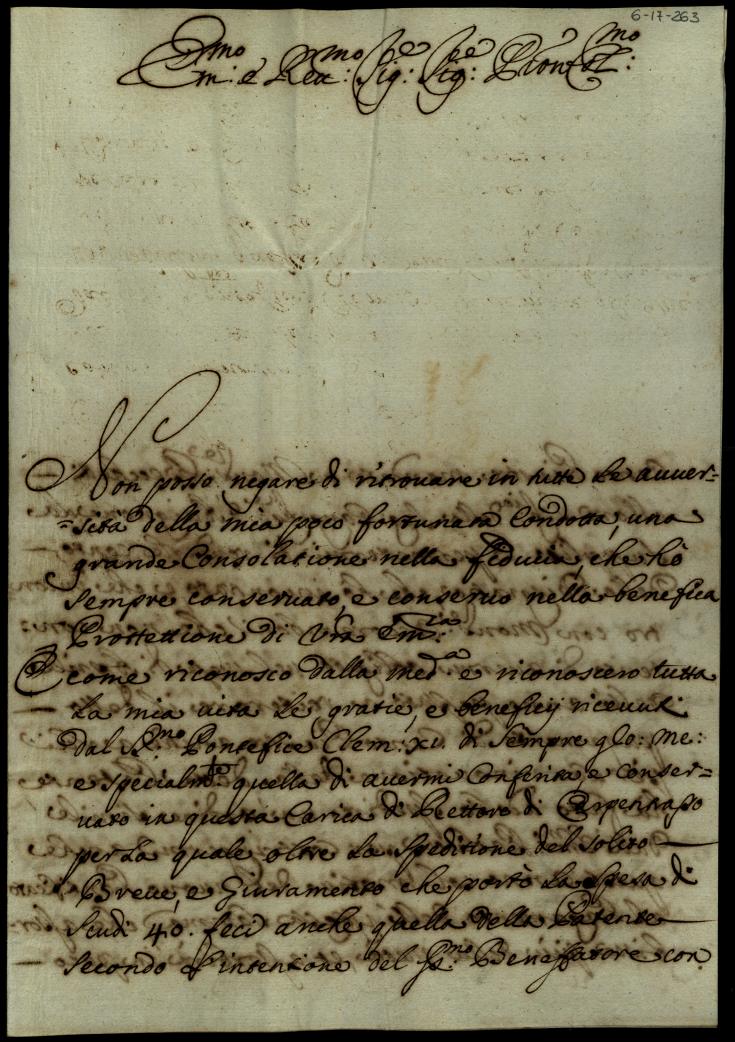 6-17-263
Em:mo e Reu:mo Sig:re Sig:re Pron Col:mo
Non posso negare di ritrouare in tutte le auuer=
=sità della mia poco fortunata Condotta, una
grande Consolatione nella fiducia, che hò
sempre conseruato, e conseruo nella benefica
Prottettione di Vra Em:za
E come riconosco dalla med:a e riconoscerò tutta
la mia uita le gratie, e beneficij riceuuti
dal S:mo Pontefice Clem: XI. di sempre glo: me:
e specialmte quella di auermi Conferita, e conser=
uato in questa Carica di Rettore di Carpentrasso
per la quale oltre la speditione del solito
Breue, e Giuramento che portò la spesa di
scudi 40. feci anche quella della Patente
secondo l'intentione del S:mo Benefattore con